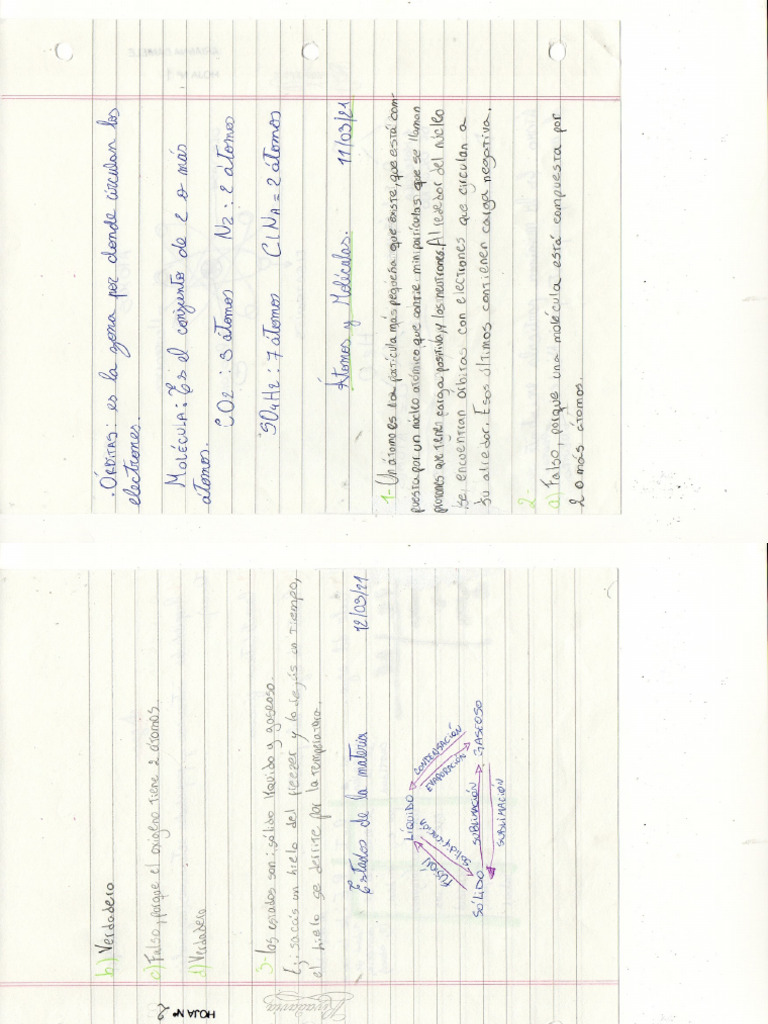 .ÓRBITAS: es la zona por donde circulan los
electrones.
MOLÉCULA: Es el conjunto de 2 o más
átomos.
CO2 : 3 átomos N2 : 2 átomos
SO4H2 : 7 átomos ClNA = 2 átomos
Átomos y Moléculas. 11/03/21
1- Un átomo es la partícula más pequeña que existe, que está com-
puesta por un núcleo atómico que contie mini partículas que se llaman
protones que tienen carga positiva, y los neutrones. Alrededor del núcleo
se encuentran órbitas con electrones que circulan a
su alredor. Esos últimos contienen carga negativa.
2-
a) Falso, porque una molécula está compuesta por
2 o más átomos.
HOJA Nº 2
Rivadavia
b) Verdadero
c) Falso, porque el oxígeno tiene 2 átomos.
d) Verdadero
3- Los estados son: sólido líquido y gaseoso.
Ej: sacás un hielo del freezer y lo dejás un tiempo,
el hielo se derrite por la temperatura.
Estados de la materia 12/03/21
LÍQUIDO
CONDENSACIÓN
EVAPORACIÓN
FUSIÓN
Solidificación
SÓLIDO SUBLIMACIÓN GASEOSO
SUBLIMACIÓN